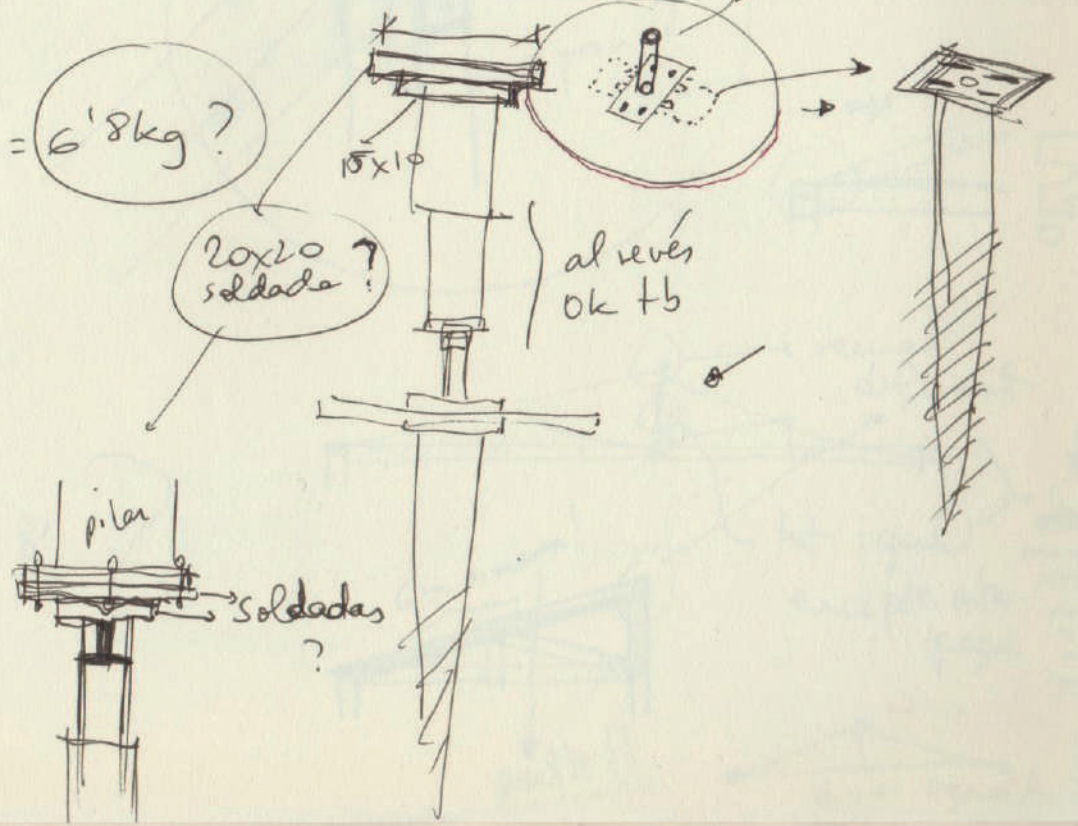 = 6'8kg ?
15x10
20x20
soldada ?
al revés
ok tb
pilar
soldadas
?